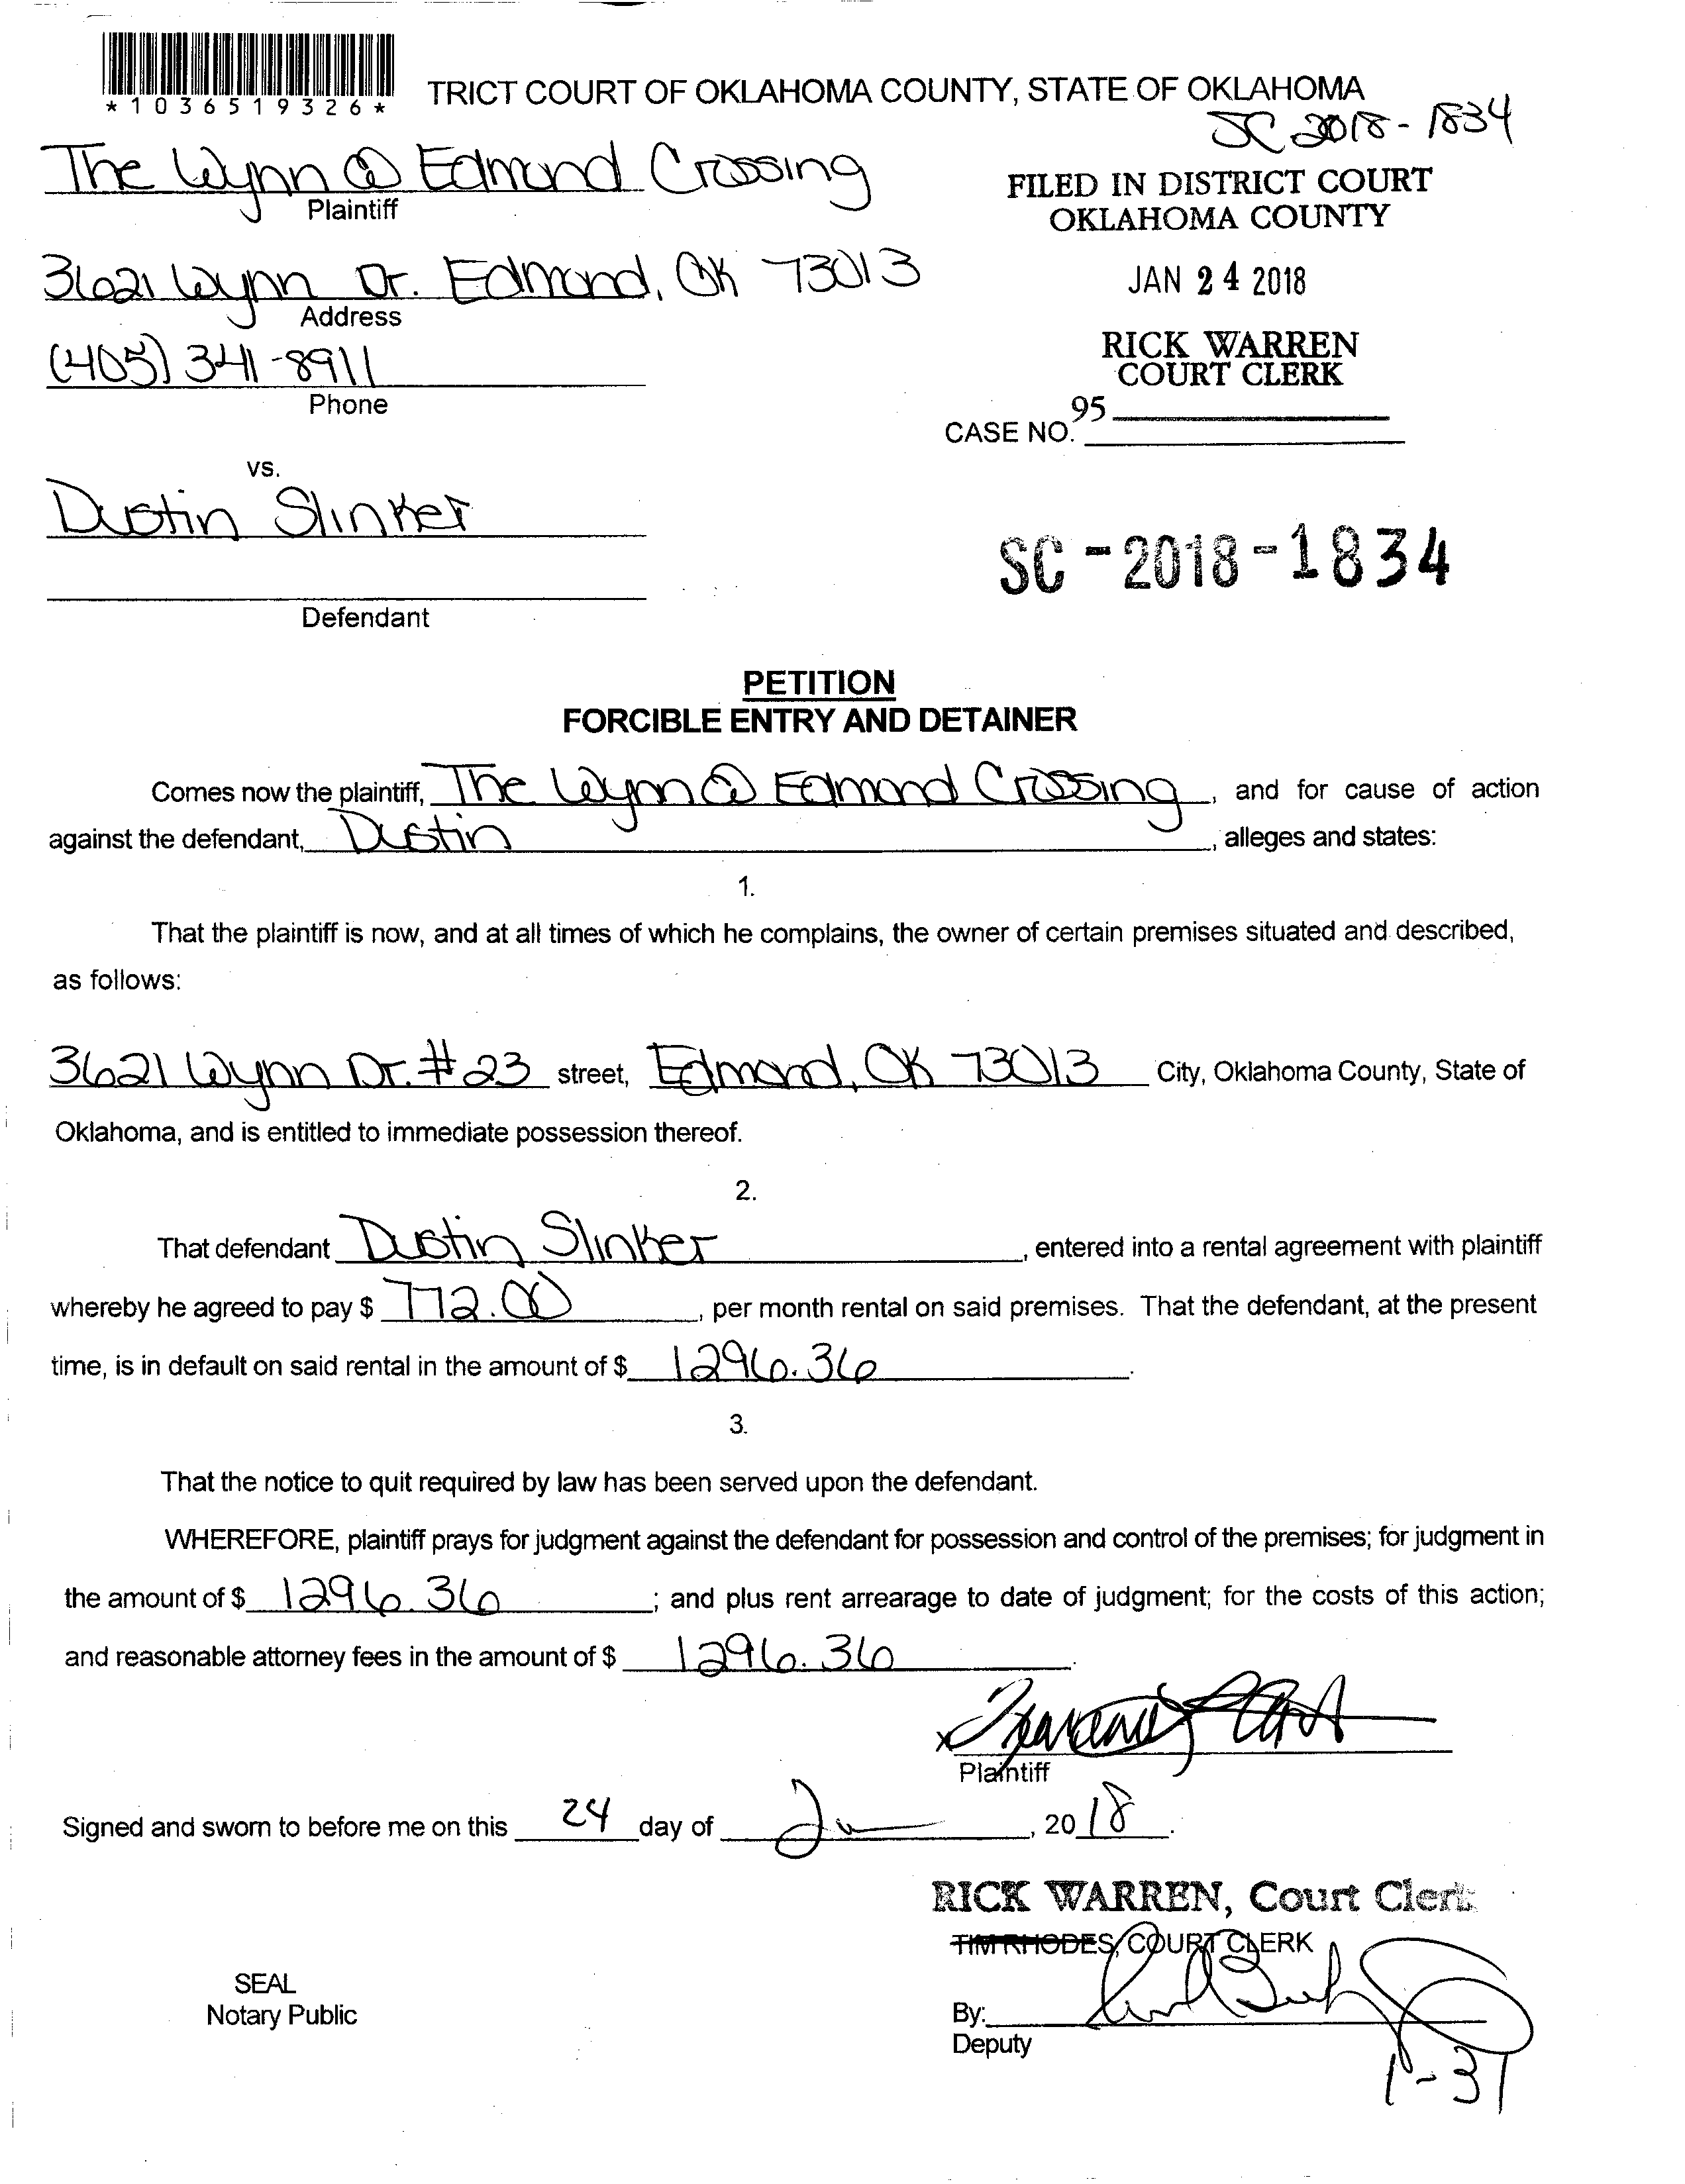 *1036519326*
TRICT COURT OF OKLAHOMA COUNTY, STATE OF OKLAHOMA
SC 2018-1834
The Wynn @ Edmond Crossing
Plaintiff
FILED IN DISTRICT COURT
OKLAHOMA COUNTY
3621 Wynn Dr. Edmond, OK 73013
Address
JAN 24 2018
(405) 341-8911
Phone
RICK WARREN
COURT CLERK
95
CASE NO.
vs.
Dustin Slinker
Defendant
SC-2018-1834
PETITION
FORCIBLE ENTRY AND DETAINER
Comes now the plaintiff, The Wynn @ Edmond Crossing, and for cause of action
against the defendant, Dustin, alleges and states:
1.
That the plaintiff is now, and at all times of which he complains, the owner of certain premises situated and described,
as follows:
3621 Wynn Dr. #23 street, Edmond, OK 73013 City, Oklahoma County, State of
Oklahoma, and is entitled to immediate possession thereof.
2.
That defendant Dustin Slinker, entered into a rental agreement with plaintiff
whereby he agreed to pay $ 772.00, per month rental on said premises. That the defendant, at the present
time, is in default on said rental in the amount of $ 1296.36.
3.
That the notice to quit required by law has been served upon the defendant.
WHEREFORE, plaintiff prays for judgment against the defendant for possession and control of the premises; for judgment in
the amount of $ 1296.36; and plus rent arrearage to date of judgment; for the costs of this action;
and reasonable attorney fees in the amount of $ 1296.36.
x
Plaintiff
Signed and sworn to before me on this 24 day of Jan, 2018.
RICK WARREN, Court Clerk
TIM RHODES, COURT CLERK
SEAL
Notary Public
By:
Deputy
1-31